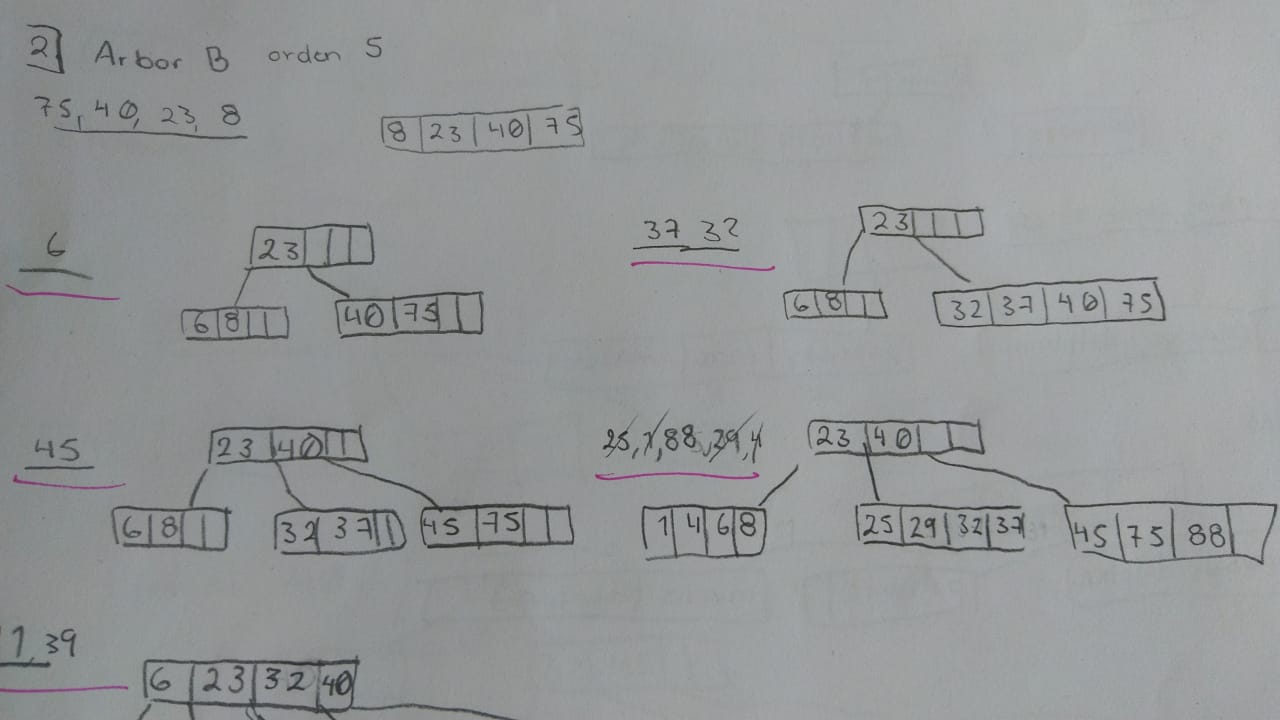 2] Arbor B orden 5
75, 40, 23, 8
8 23 40 75
6
23
6 8
40 75
37 32
23
6 8
32 37 40 75
45
23 40
6 8
32 37
45 75
25, 1, 88, 29, 4
23 40
1 4 6 8
25 29 32 37
45 75 88
1, 39
6 23 32 40